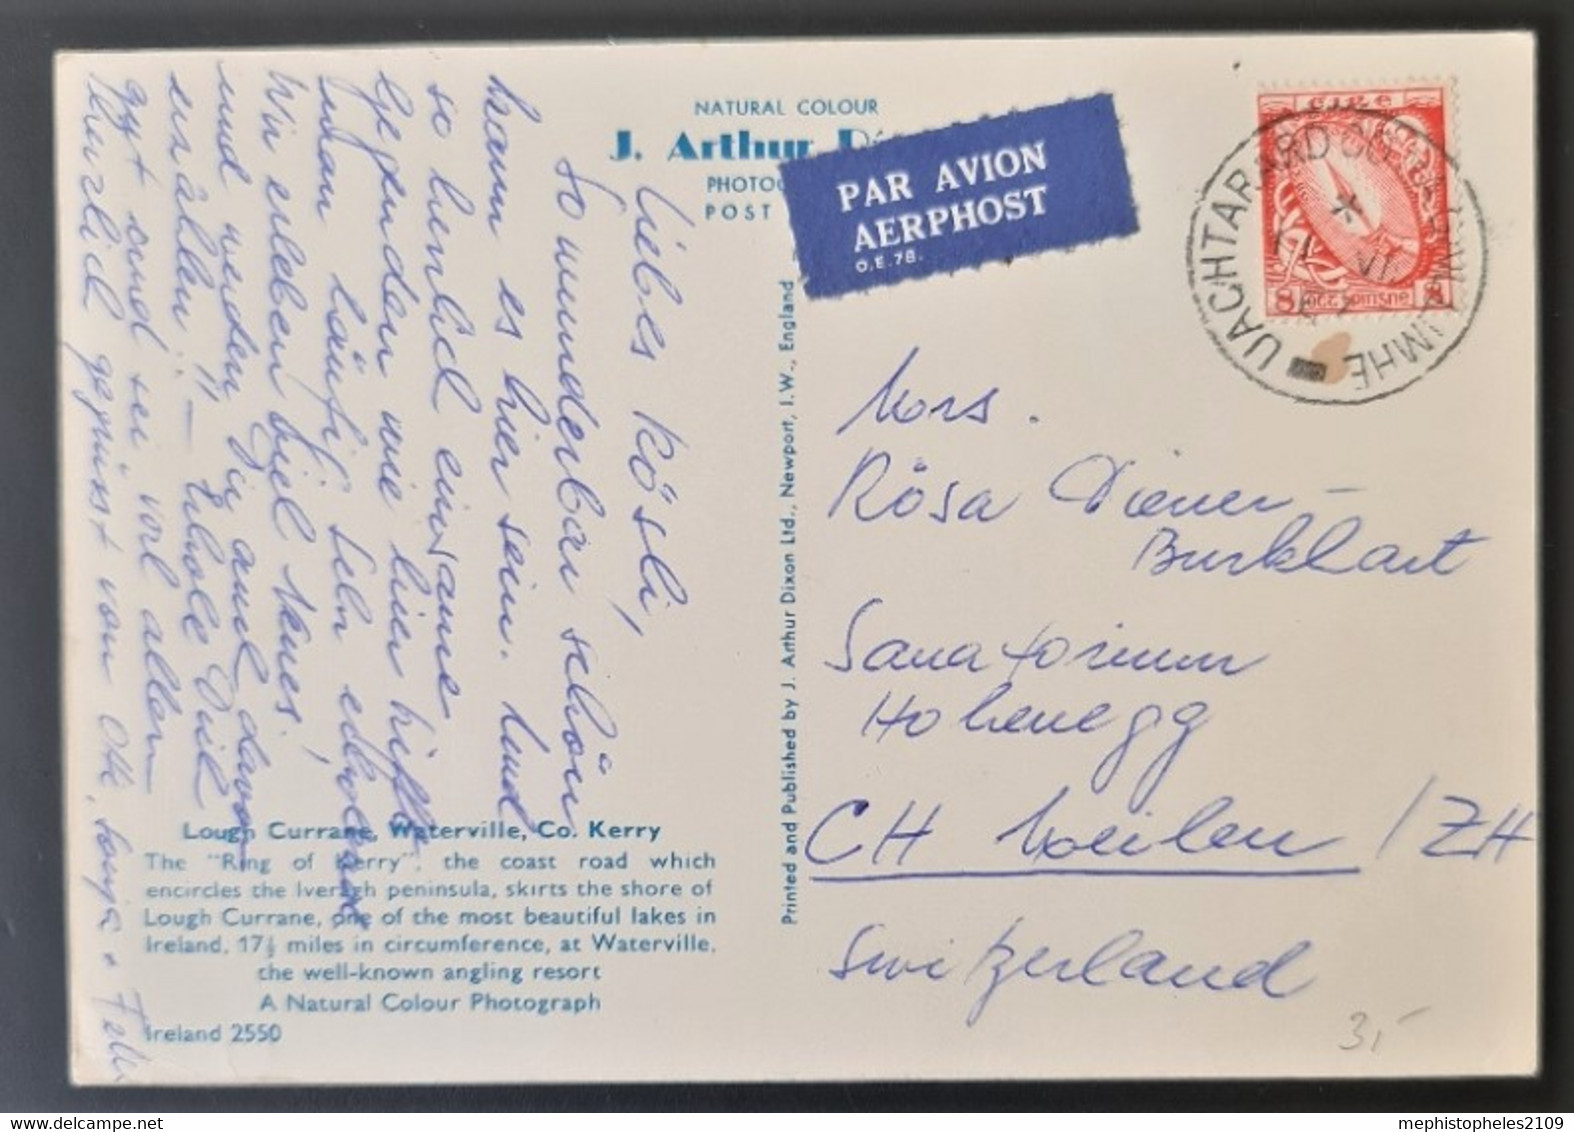 NATURAL COLOUR
J. Arthur
PHOTO
POST
PAR AVION
AERPHOST
O.E. 78.
eire
8 OCC pinsne 8
UACHTARARD CO.
Liebes Rösli,
So wunderbar schön
kann es hier sein. Und
so herrlich einsame
Gegenden wie hier
man häufig sehr
Wir erleben viel Neues!
und werden Dir davon
erzählen!! – Erhole Dich
gut und sei vor allem
herzlich gegrüsst von
Mrs.
Rösa Diener-
Burkhart
Sanatorium
Hohenegg
CH Meilen / ZH
Switzerland
Printed and Published by J. Arthur Dixon Ltd., Newport, I.W., England
Lough Currane, Waterville, Co. Kerry
The "Ring of Kerry", the coast road which
encircles the Iveragh peninsula, skirts the shore of
Lough Currane, one of the most beautiful lakes in
Ireland, 17½ miles in circumference, at Waterville,
the well-known angling resort
A Natural Colour Photograph
Ireland 2550
3,-
delcampe.net
mephistopheles2109